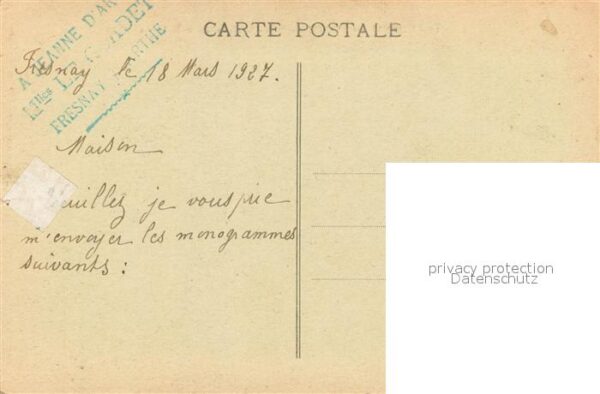 CARTE POSTALE
A JEANNE D'AR
Mlles LE
FRESNAY SARTHE
Fresnay le 18 Mars 1927.
Maison
Veuillez je vous prie
m'envoyer les monogrammes
suivants :
privacy protection
Datenschutz